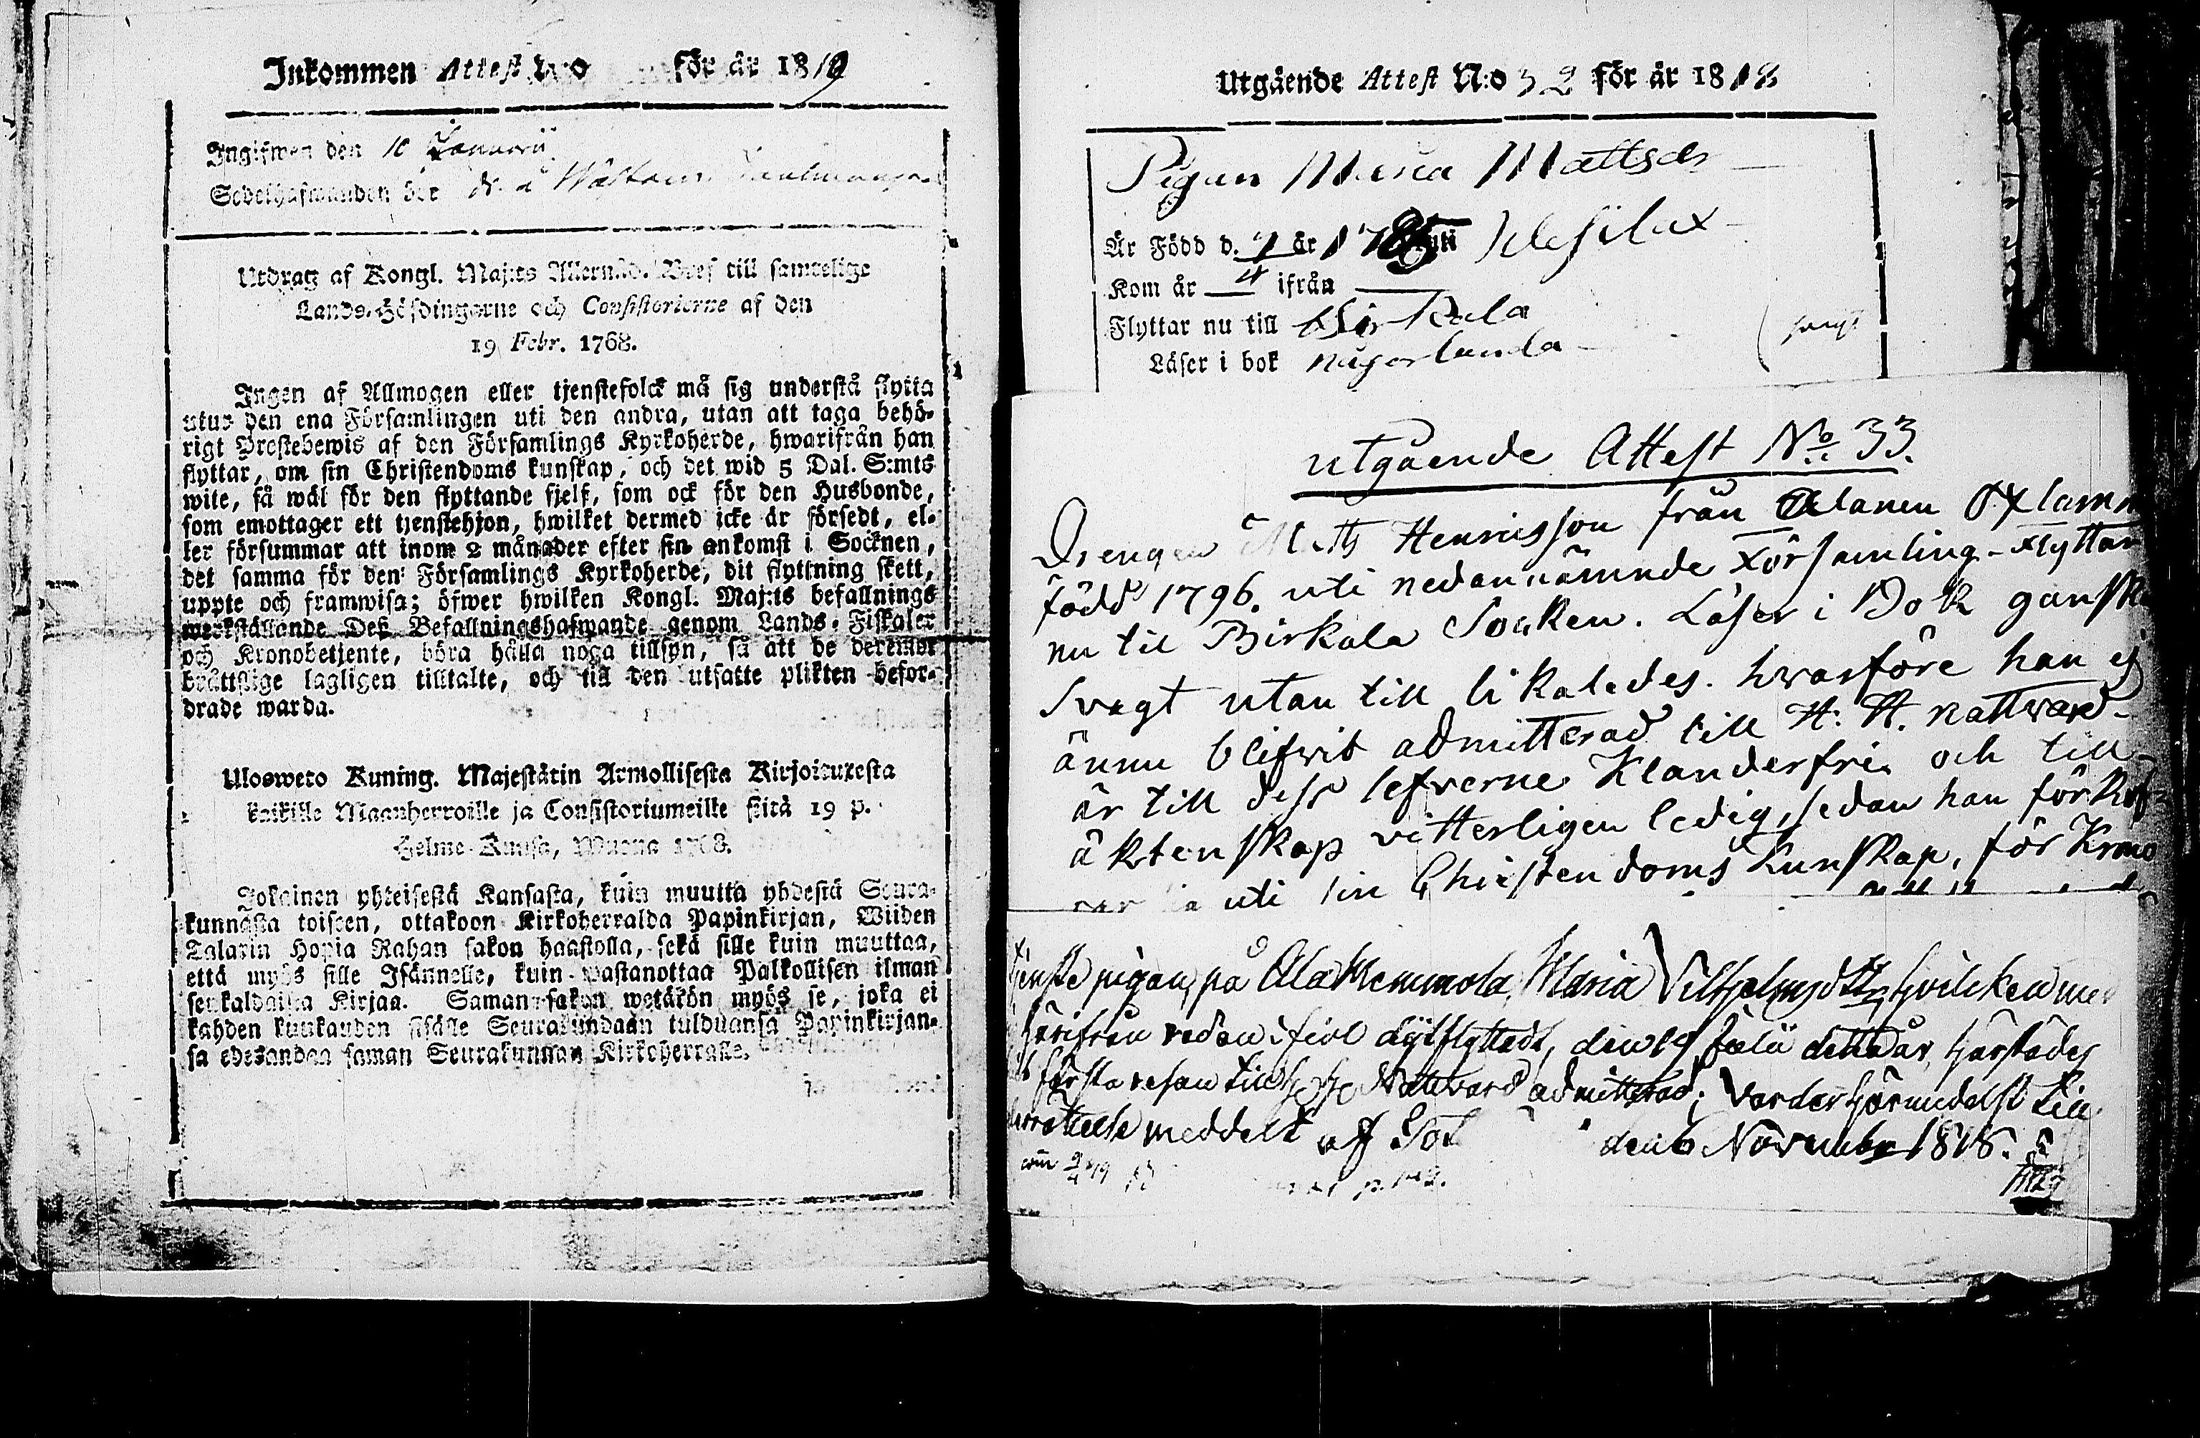 Inkommen Attest N:o för år 1819
Ingifwen den 10 Januarii
Sedelhafwanden bör
Utdrag af Kongl. Maj:ts Allernåd. Bref till samtelige
Lands-Höfdingarne och Consistorierne af den
19 Febr. 1768.
Ingen af Allmogen eller tjenstefolck må sig understå flytta
utur den ena Församlingen uti den andra, utan att taga behö-
rigt Prestebewis af den Församlings Kyrkoherde, hwarifrån han
flyttar, om sin Christendoms kunskap, och det wid 5 Dal. S:mts
wite, så wäl för den flyttande sjelf, som ock för den Husbonde,
som emottager ett tjenstehjon, hwilket dermed icke är försedt, el-
ler försummar att inom 2 månader efter sin ankomst i Socknen,
det samma för den Församlings Kyrkoherde, dit flyttning skett,
uppte och framwisa; öfwer hwilken Kongl. Maj:ts befallnings
werkställande Deß Befallningshafwande genom Lands-Fiskaler
och Kronobetjente, böra hålla noga tillsyn, så att de deremot
bråttslige lagligen tilltalte, och till den utsatte plikten befor-
drade warda.
Ulosweto Kuning. Majestätin Armollisesta Kirjoituxesta
kaikille Maanherroille ja Consistoriumeille siitä 19 p.
Helme-Kuusa, Wuona 1768.
Jokainen yhteisestä Kansasta, kuin muutta yhdestä Seura-
kunnasta toiseen, ottakoon Kirkoherralda Papinkirjan, Wiiden
Talarin Hopia Rahan sakon haastolla, sekä sille kuin muuttaa,
että myös sille Isännelle, kuin wastanottaa Palkollisen ilman
senkaldaista Kirjaa. Saman sakon wetäkön myös se, joka ei
kahden kuukauden sisälle Seurakundaan tulduansa Papinkirjan-
sa edesandaa saman Seurakunnan Kirkoherralle.
Utgående Attest N:o 32 för år 1818
Pigan Maria Mattsdr
Är Född d. 7 år 1785 uti Wesilax
Kom år ifrån
Flyttar nu till Birkala
Läser i bok någorlunda
utgående Attest No 33.
Drengen Matts Henricsson från Alanen Oxlamm
född 1796. uti nedannämnde Församling - Flyttar
nu til Birkala Socken. Läser i Bok ganska
Svagt utan till likaledes. hvarföre han ej
ännu blifvit admitterad till H. H. nattvard-
är till dess lefverne Klanderfri och till
äktenskap vitterligen ledig, sedan han förkof-
uti sin Christendoms Kunskap, för Krono
tjenste pigan, på Ala Hemmola, Maria Vilhelmsdtr, hvilcken med
härifrån redan dytflyttadt, den 19 Julii detta år, härstädes
första resan till H. H. Nattvard admitterad; varder härmedelst till
underrättelse meddelt af den 6 November 1818.